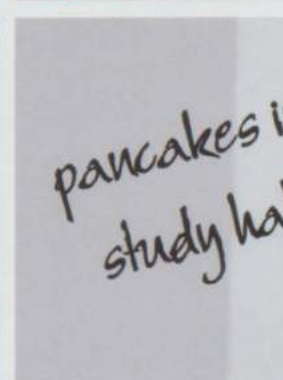 pancakes i
study ha